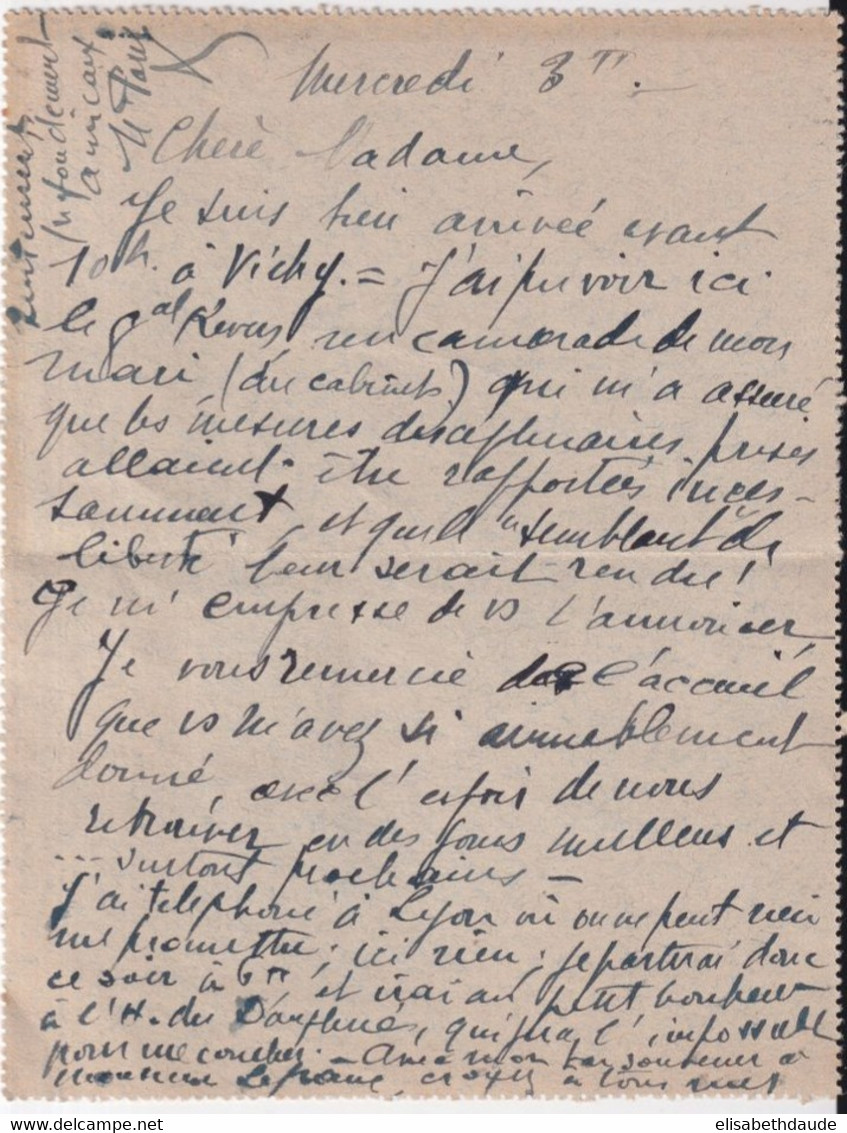 Mercredi 3 H. —
Chère Madame,
Je suis bien arrivée avant
10h. à Vichy. = J'ai pu voir ici
le gal Revers, un camarade de mon
mari (du cabinet) qui m'a assuré
que les mesures disciplinaires prises
allaient être rapportées inces-
samment, et qu'un "semblant de
liberté" leur serait rendu!
Je m'empresse de vs l'annoncer,
Je vous remercie de l'accueil
que vs m'avez si aimablement
donné, avec l'espoir de nous
retrouver en des jours meilleurs et
... surtout prochains —
J'ai téléphoné à Lyon où on ne peut rien
me promettre; ici rien; je partirai donc
ce soir à 6H et irai au petit bonheur
à l'H. du Dauphiné, qui fera l'impossible
pour me coucher. — Avec mon bon souvenir à
monsieur Lefranc, croyez à tous mes
sentiments
profondément
amicaux
elisabethdaude